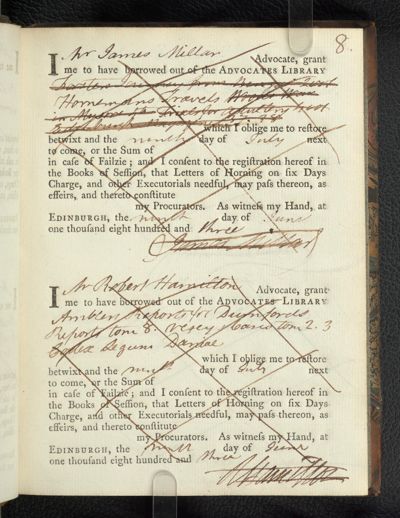 8.
I Mr James Millar Advocate, grant
me to have borrowed out of the ADVOCATES LIBRARY
Travels
which I oblige me to reſtore
betwixt and the ninth day of July next
to come, or the Sum of
in caſe of Failzie; and I conſent to the regiſtration hereof in
the Books of Seſſion, that Letters of Horning on ſix Days
Charge, and other Executorials needful, may paſs thereon, as
effeirs, and thereto conſtitute
my Procurators. As witneſs my Hand, at
EDINBURGH, the ninth day of June
one thouſand eight hundred and three
James Millar
I Mr Robert Hamilton Advocate, grant
me to have borrowed out of the ADVOCATES LIBRARY
Amblers Reports Durnfords
Reports tom 8. Vesey tom 2. 3
which I oblige me to reſtore
betwixt and the ninth day of July next
to come, or the Sum of
in caſe of Failzie; and I conſent to the regiſtration hereof in
the Books of Seſſion, that Letters of Horning on ſix Days
Charge, and other Executorials needful, may paſs thereon, as
effeirs, and thereto conſtitute
my Procurators. As witneſs my Hand, at
EDINBURGH, the ninth day of June
one thouſand eight hundred and three
R Hamilton